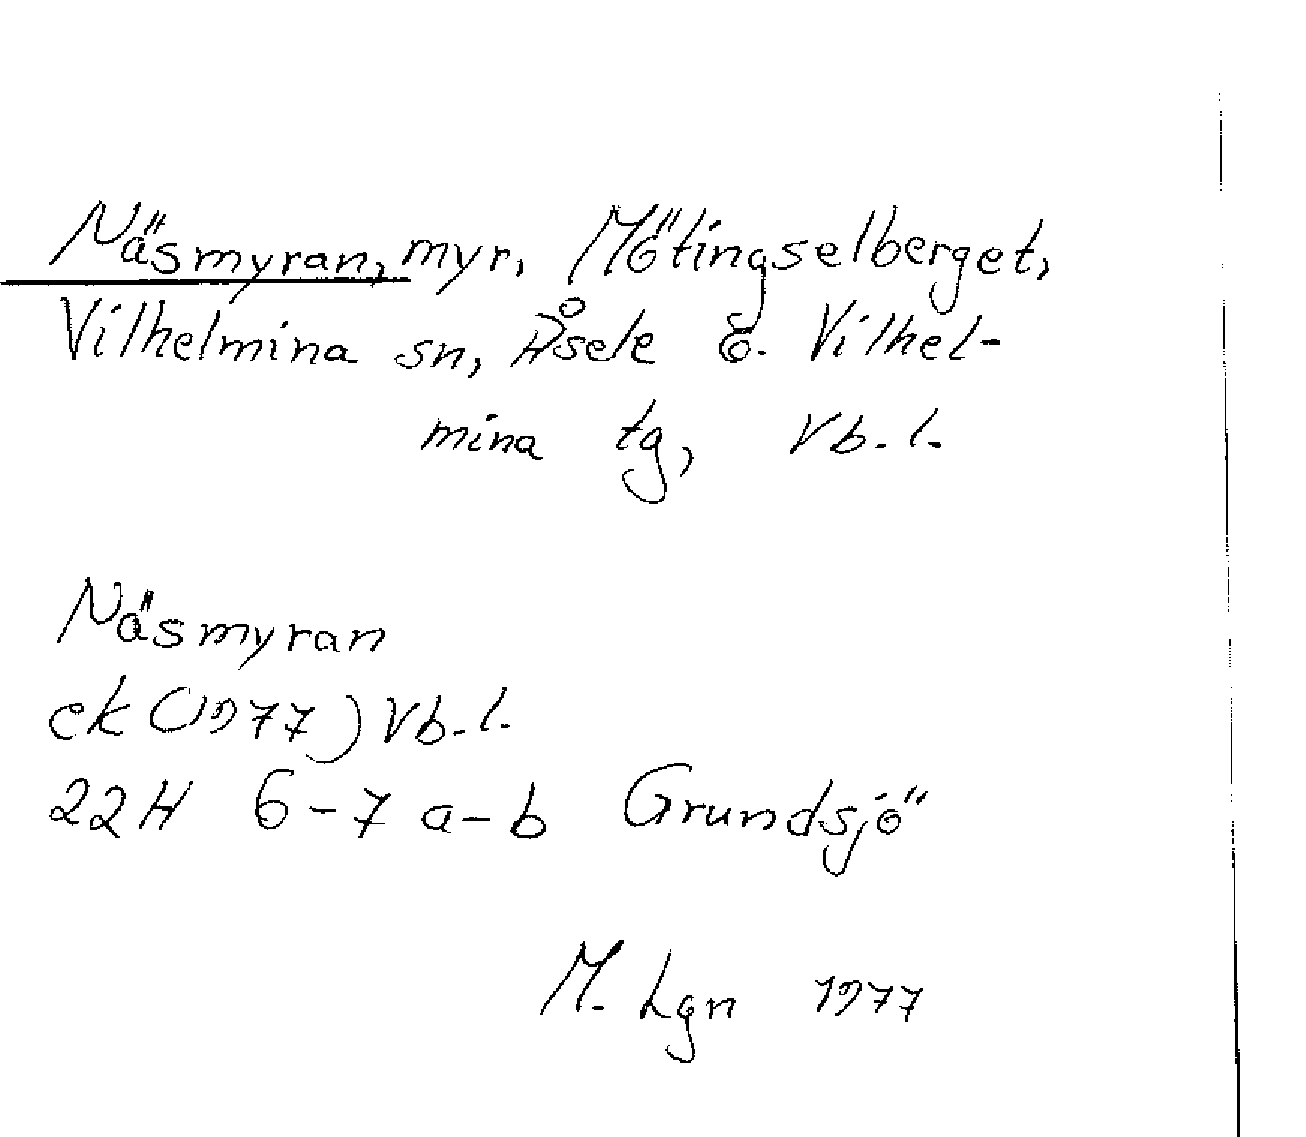 Näsmyran, myr, Mötingselberget,
Vilhelmina sn, Åsele o. Vilhel-
mina tg, Vb. l.
Näsmyran
ek (1977) Vb. l.
22H 6-7 a-b Grundsjö
M. Lgn 1977